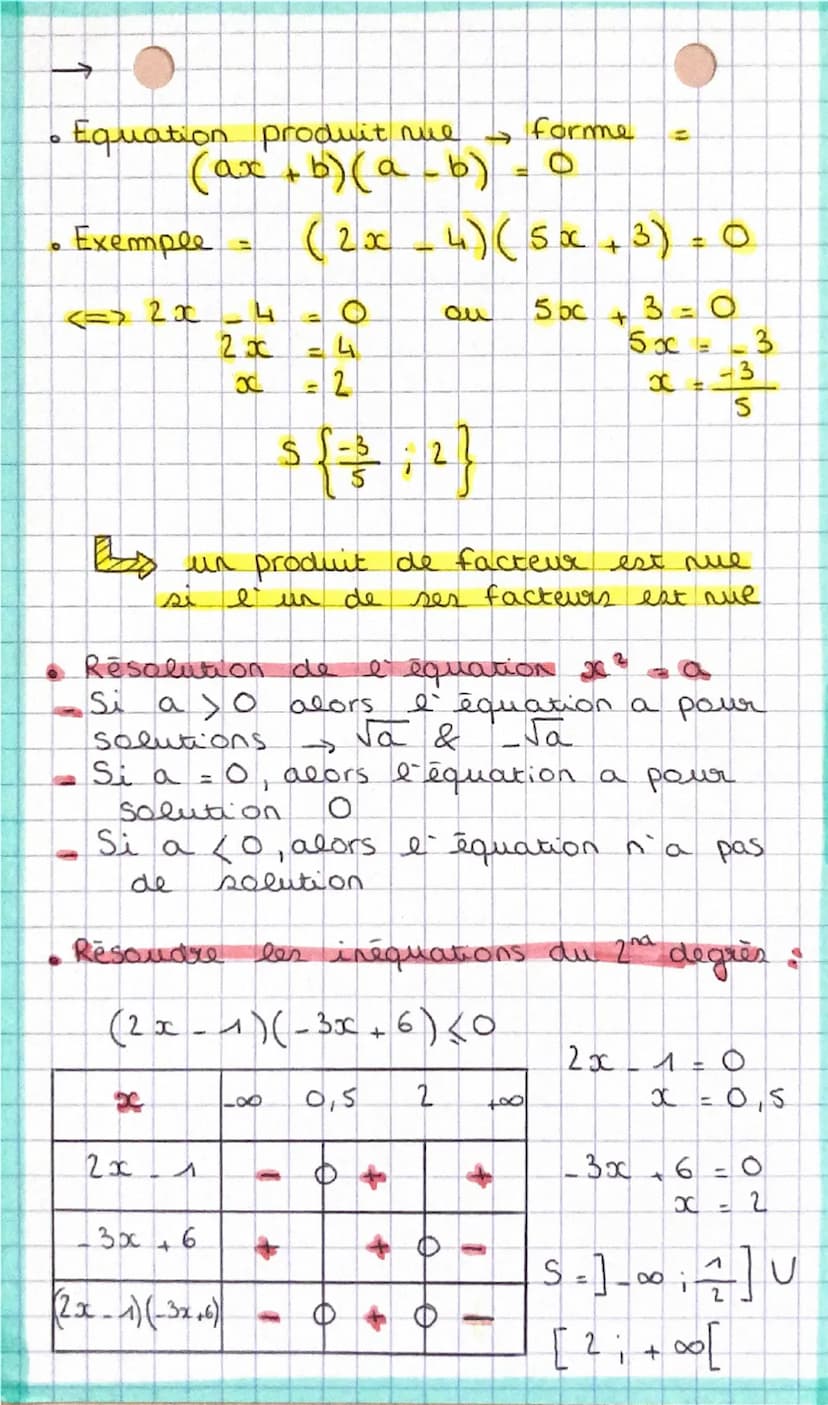 →
• Equation produit nul → forme =
(ax + b)(a - b) = 0
• Exemple = (2x - 4)(5x + 3) = 0
<=> 2x - 4 = 0 ou 5x + 3 = 0
2x = 4 5x = -3
x = 2 x = -3/5
S {-3/5 ; 2}
un produit de facteur est nul
si l'un de ses facteurs est nul
• Résolution de l'équation x² = a
- Si a > 0 alors l'équation a pour
solutions → √a & -√a
- Si a = 0, alors l'équation a pour
solution 0
- Si a < 0, alors l'équation n'a pas
de solution
• Résoudre les inéquations du 2nd degrès :
(2x - 1)(-3x + 6) ⩽ 0
2x - 1 = 0
x -∞ 0,5 2 +∞
x = 0,5
2x - 1 - 0 + +
-3x + 6 = 0
x = 2
-3x + 6 + + 0 -
S = ]-∞ ; 1/2] U
(2x - 1)(-3x+6) - 0 + 0 -
[2 ; +∞[